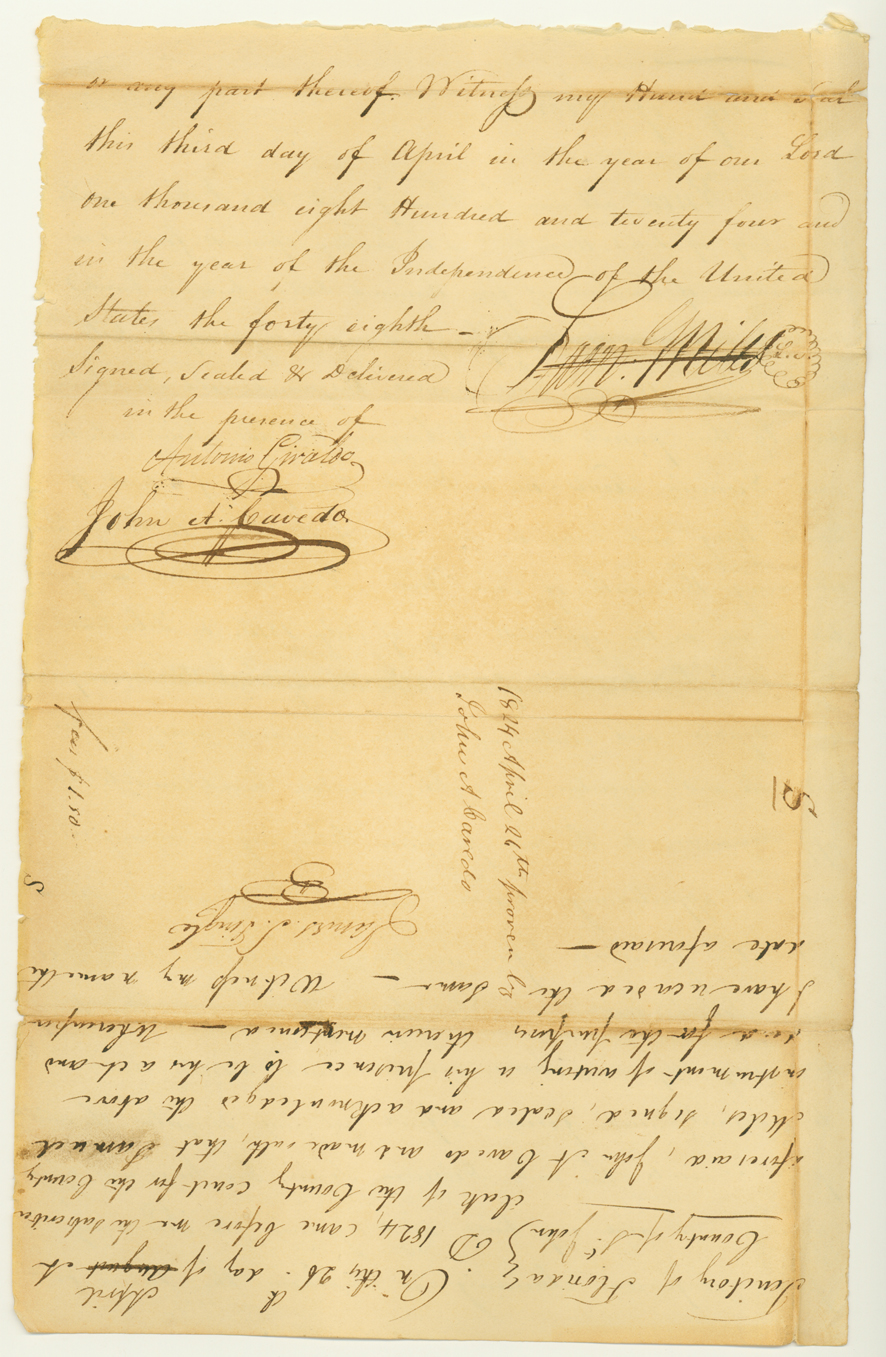 or any part thereof. Witness my Hand and Seal
this third day of April in the year of our Lord
one thousand eight Hundred and twenty four and
in the year of the Independence of the United
States the forty eighth —
Sam. Miles L.S.
Signed, Sealed & Delivered
in the presence of
Antonio Giraldo
John A. Cavedo.
1824 April 26th proven by
John A Cavedo
fees $1.50.
S
S
Territory of Florida
County of St. John
On this 26th. day of august April A
D 1824, came before me the subscriber
clerk of the County Court for the County
aforesaid, John A Cavedo and made oath, that Samuel
Miles, signed, sealed and acknowledged the above
instrument of writing in his presence to be his act and
deed for the purposes therein mentioned — Whereupon
I have recorded the same — Witness my name the
date aforesaid —
James S. Tingle